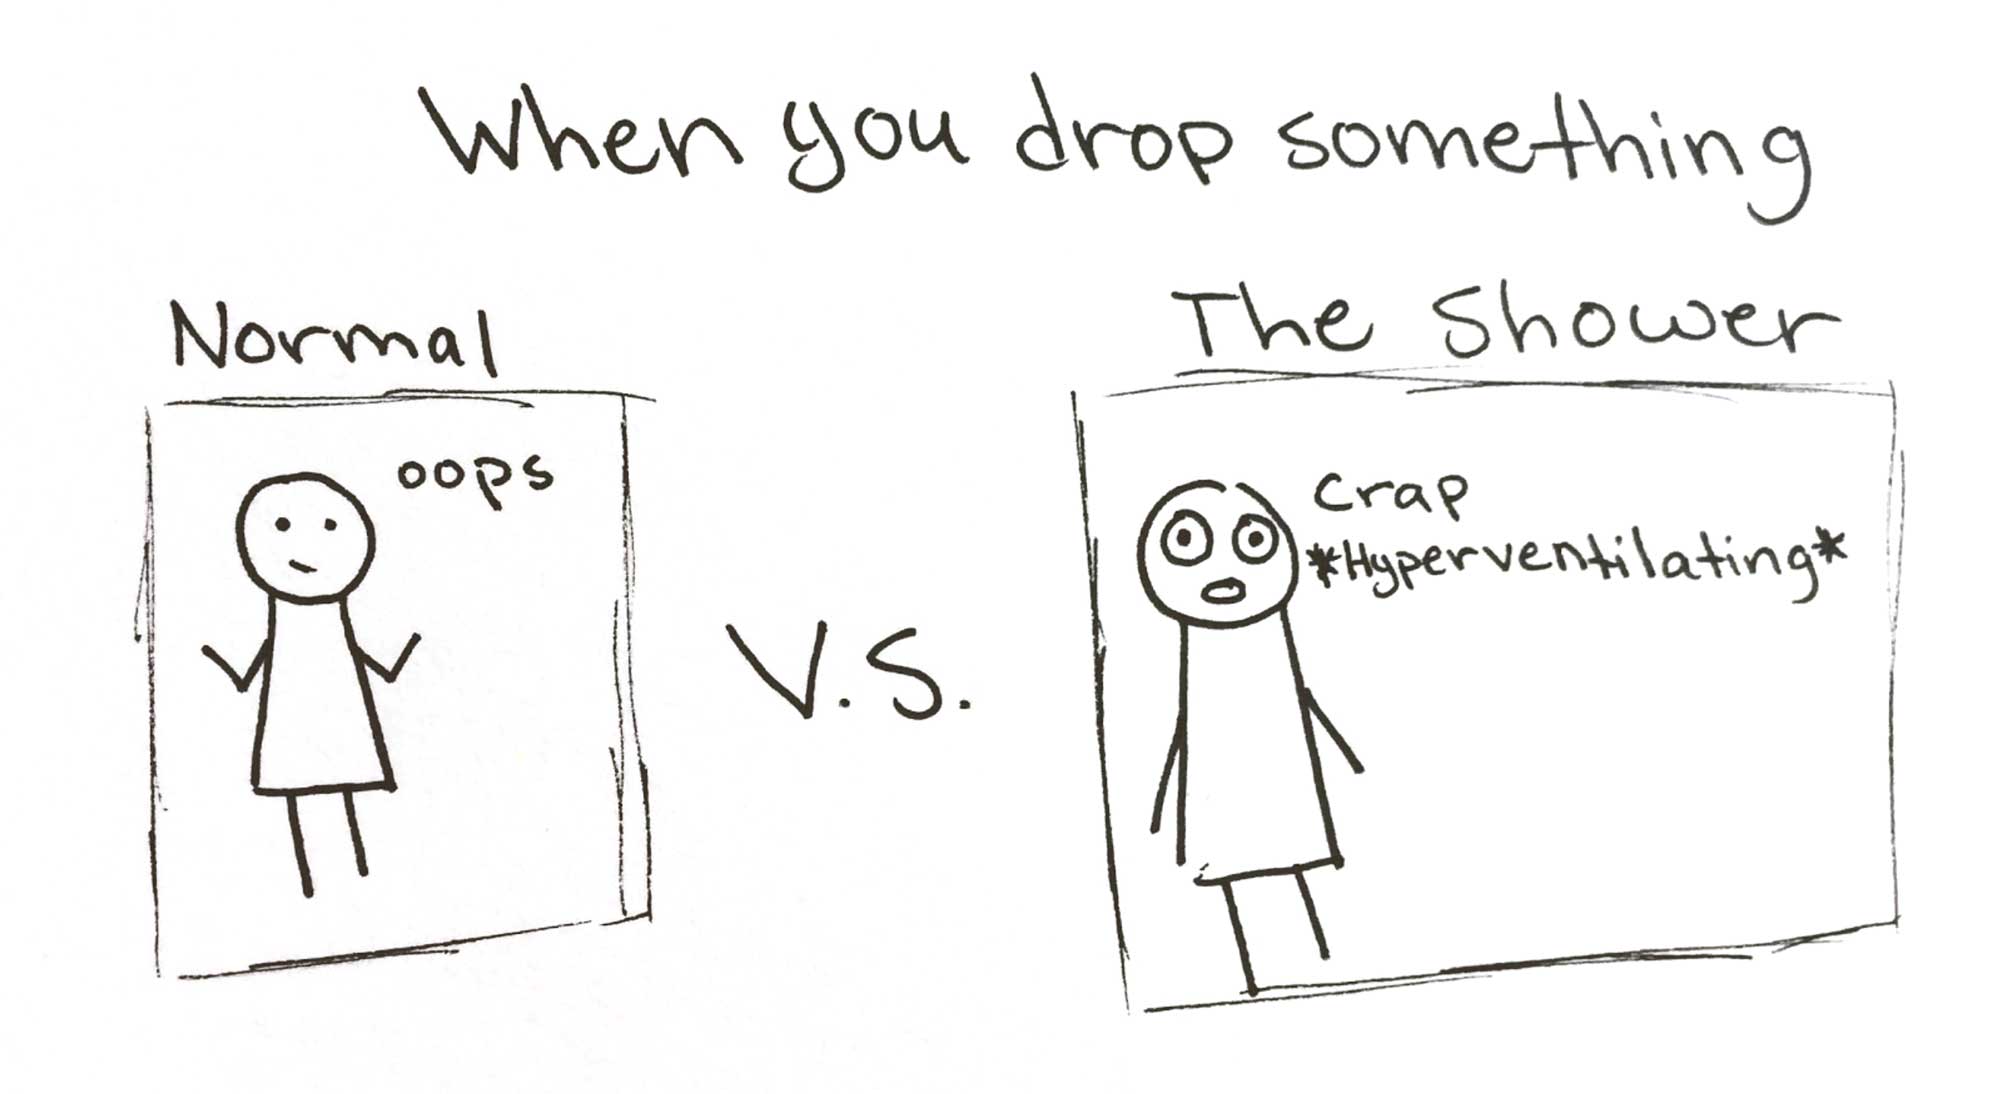 When you drop something
Normal
The Shower
oops
V.S.
crap
*Hyperventilating*